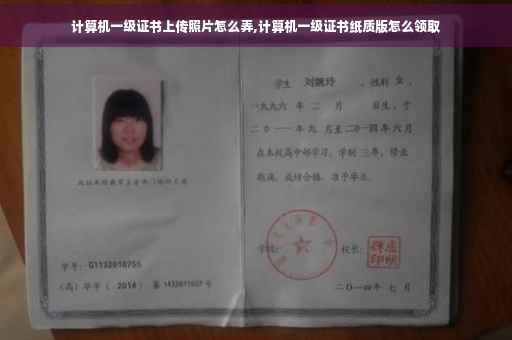 计算机一级证书上传照片怎么弄,计算机一级证书纸质版怎么领取
学生 刘婉玲 ,性别 女 ,
一九九六 年 二 月 日生,于
二〇一一年九 月至二〇一四年六月
在本校高中部学习,学制 三年,修业
期满,成绩合格,准予毕业。
学校: 校长:
学号: G1132010755
(高)毕字( 2014 )第 1432011027 号
二〇一四年 七 月